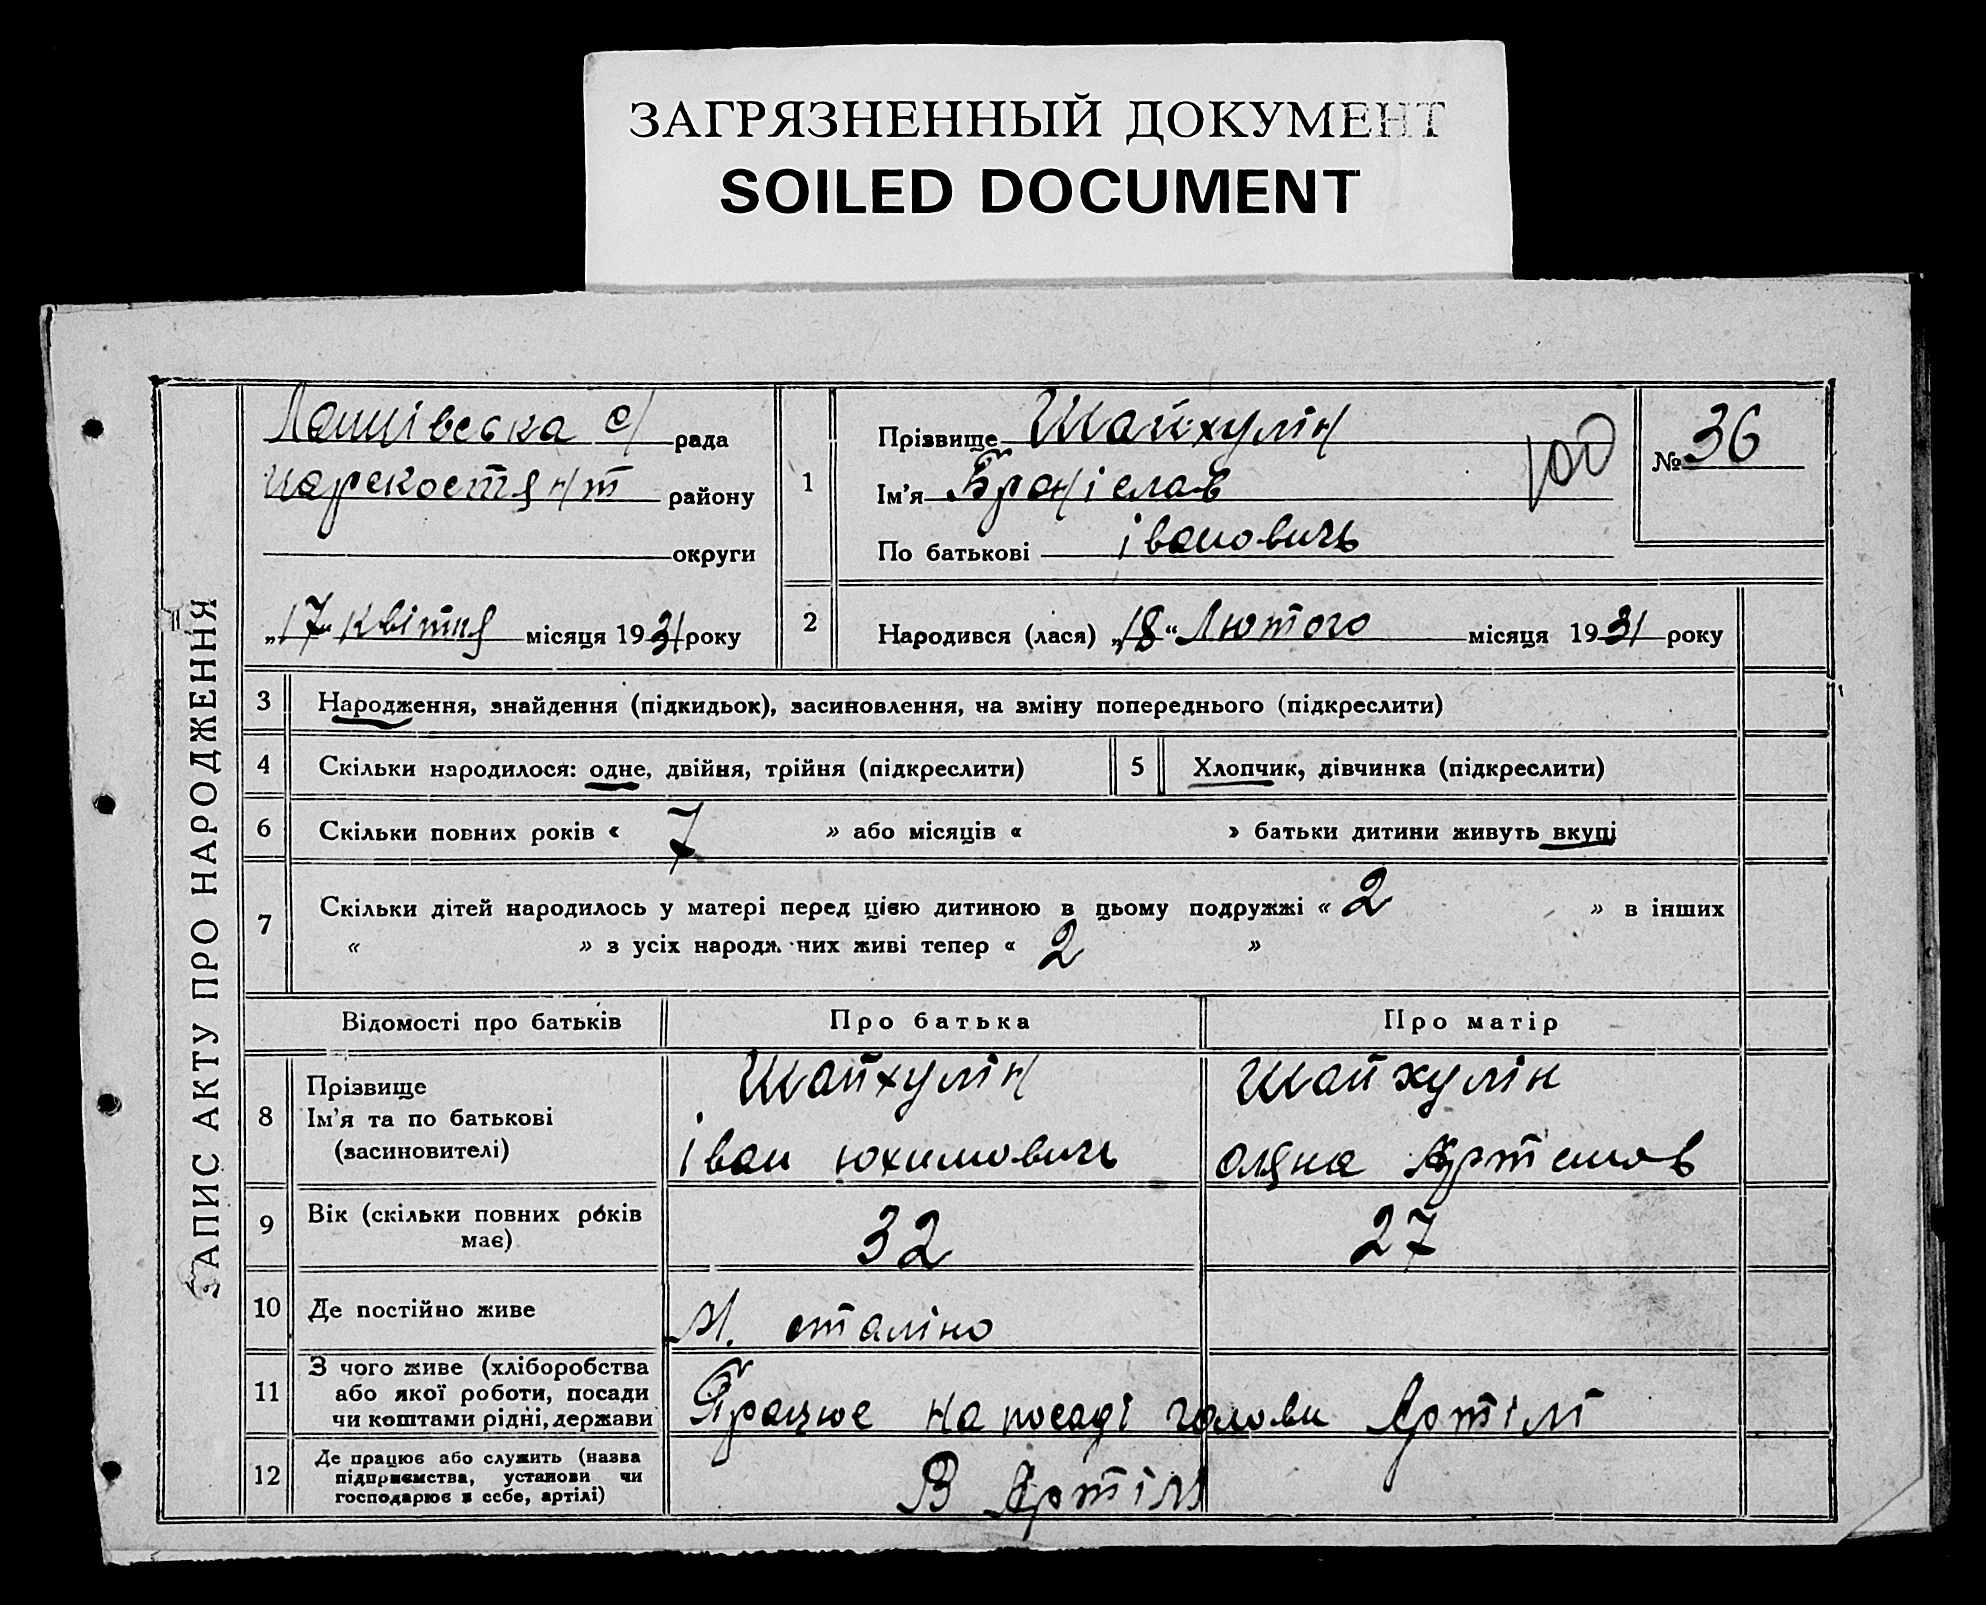 ЗАГРЯЗНЕННЫЙ ДОКУМЕНТ
SOILED DOCUMENT
ЗАПИС АКТУ ПРО НАРОДЖЕННЯ
рада
району
округи
„17“ квітня місяця 1931 року
1
Прізвище Шайхулін
Ім'я Броніслав
По батькові івановичь
100
№ 36
2
Народився (лася) „18“ Лютого місяця 1931 року
3 Народження, знайдення (підкидьок), засиновлення, на зміну попереднього (підкреслити)
4 Скільки народилося: одне, двійня, трійня (підкреслити)
5 Хлопчик, дівчинка (підкреслити)
6 Скільки повних років « 7 » або місяців « » батьки дитини живуть вкупі
7 Скільки дітей народилось у матері перед цією дитиною в цьому подружжі « 2 » в інших
« » з усіх народж них живі тепер « 2 »
Відомості про батьків Про батька Про матір
8
Прізвище
Ім'я та по батькові
(засиновителі)
Шайхулін
іван юхимовичь
Шайхулін
оляна Артемов
9
Вік (скільки повних років
має)
32
27
10 Де постійно живе
М. сталіно
11
З чого живе (хліборобства
або якої роботи, посади
чи коштами рідні, держави
Працює на посаді голови Артілі
12
Де працює або служить (назва
підприємства, установи чи
господарює в себе, артілі)
В Артілі